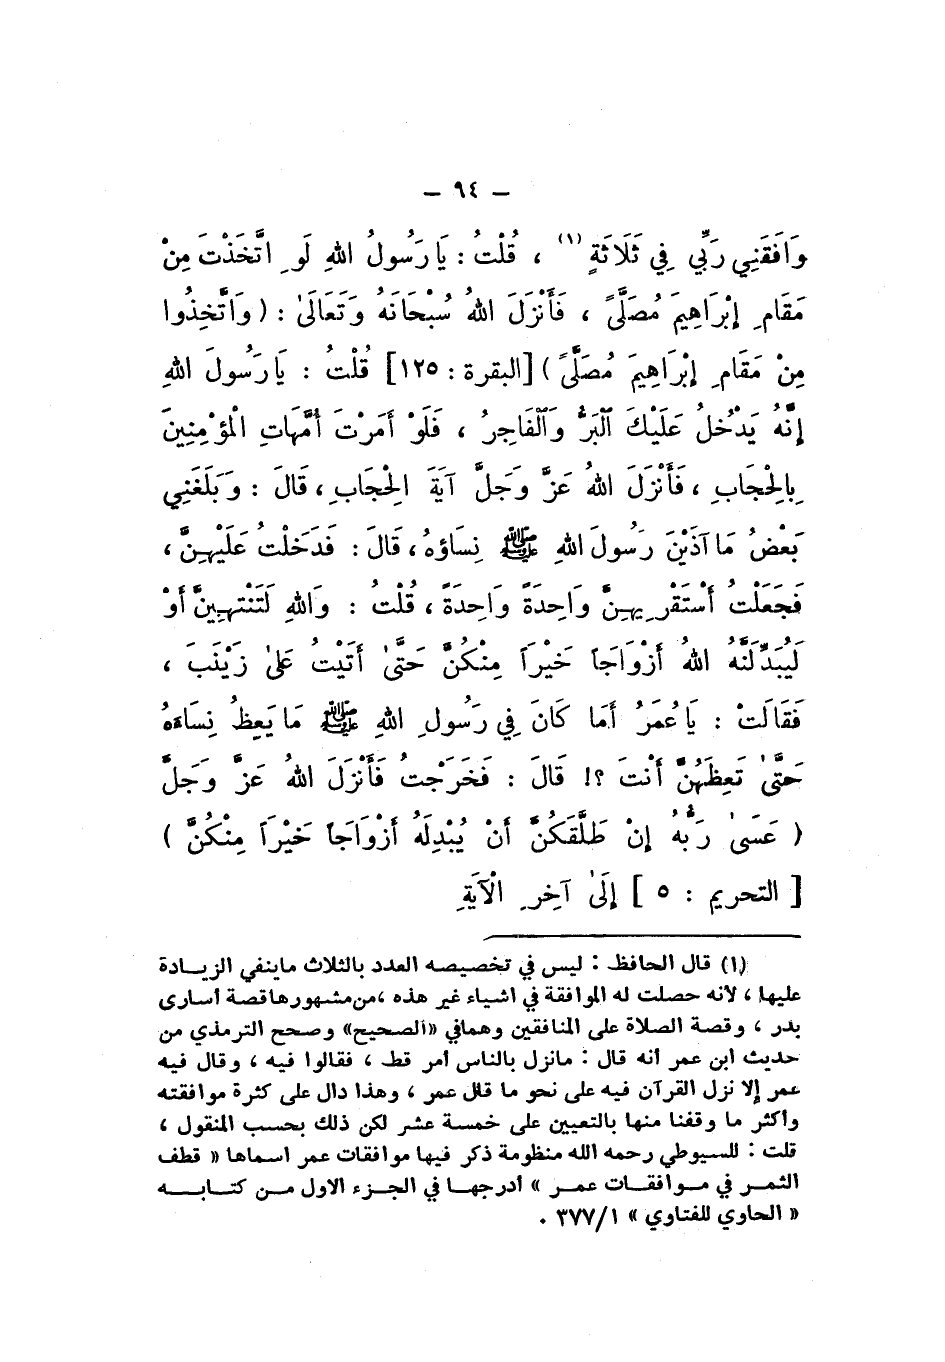 – ٩٤ –
وَافَقَنِي رَبِّي فِي ثَلَاثَةٍ (١) ، قُلْتُ : يَا رَسُولُ اللهِ لَوِ اتَّخَذْتَ مِنْ
مَقَامِ إِبْرَاهِيمَ مُصَلًّى ، فَأَنْزَلَ اللهُ سُبْحَانَهُ وَتَعَالَىٰ : ( وَاتَّخِذُوا
مِنْ مَقَامِ إِبْرَاهِيمَ مُصَلًّى ) [البقرة : ١٢٥] قُلْتُ : يَا رَسُولَ اللهِ
إِنَّهُ يَدْخُلُ عَلَيْكَ ٱلْبَرُّ وَٱلْفَاجِرُ ، فَلَوْ أَمَرْتَ أُمَّهَاتِ الْمُؤْمِنِينَ
بِالْحِجَابِ ، فَأَنْزَلَ اللهُ عَزَّ وَجَلَّ آيَةَ الْحِجَابِ ، قَالَ : وَبَلَغَنِي
بَعْضُ مَا آذَيْنَ رَسُولَ اللهِ ﷺ نِسَاؤُهُ ، قَالَ : فَدَخَلْتُ عَلَيْهِنَّ ،
فَجَعَلْتُ أَسْتَقْرِيهِنَّ وَاحِدَةً وَاحِدَةً ، قُلْتُ : وَاللهِ لَتَنْتَهِينَّ أَوْ
لَيُبَدِّلَنَّهُ اللهُ أَزْوَاجاً خَيْراً مِنْكُنَّ حَتَّىٰ أَتَيْتُ عَلىٰ زَيْنَبَ ،
فَقَالَتْ : يَا عُمَرُ أَمَا كَانَ فِي رَسُولِ اللهِ ﷺ مَا يَعِظُ نِسَاءَهُ
حَتَّىٰ تَعِظَهُنَّ أَنْتَ ؟! قَالَ : فَخَرَجْتُ فَأَنْزَلَ اللهُ عَزَّ وَجَلَّ
( عَسَىٰ رَبُّهُ إِنْ طَلَّقَكُنَّ أَنْ يُبْدِلَهُ أَزْوَاجاً خَيْراً مِنْكُنَّ )
[ التحريم : ٥ ] إِلَىٰ آخِرِ الْآيَةِ
(١) قال الحافظ : ليس في تخصيصه العدد بالثلاث ماينفي الزيــادة
عليها ، لأنه حصلت له الموافقة في اشياء غير هذه ،من مشهورها قصة أسارى
بدر ، وقصة الصلاة على المنافقين وهمافي «الصحيح» وصحح الترمذي من
حديث ابن عمر أنه قال : مانزل بالناس أمر قط ، فقالوا فيه ، وقال فيه
عمر إلا نزل القرآن فيه على نحو ما قال عمر ، وهذا دال على كثرة موافقته
وأكثر ما وقفنا منها بالتعيين على خمسة عشر لكن ذلك بحسب المنقول ،
قلت : للسيوطي رحمه الله منظومة ذكر فيها موافقات عمر اسماها « قطف
الثمـر في مـوافقـات عمـر » أدرجهـا في الجزء الاول مـن كتـابـه
« الحاوي للفتاوي » ٣٧٧/١ .